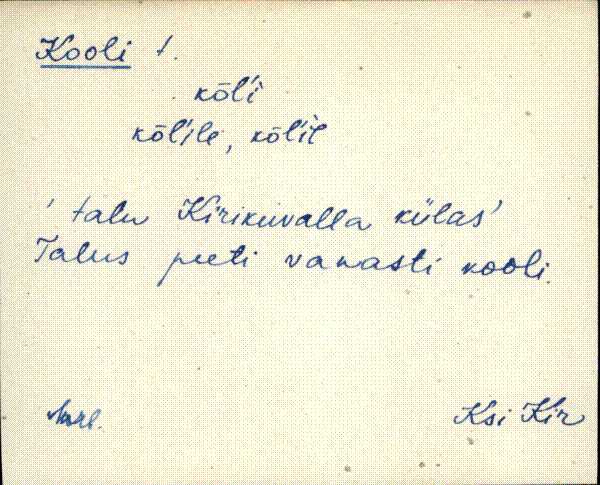 Kooli t.
kōl'i
kōl'ile, kōl'il
' talu Kirikuvalla külas'
Talus peeti vanasti kooli.
Ksi Kir